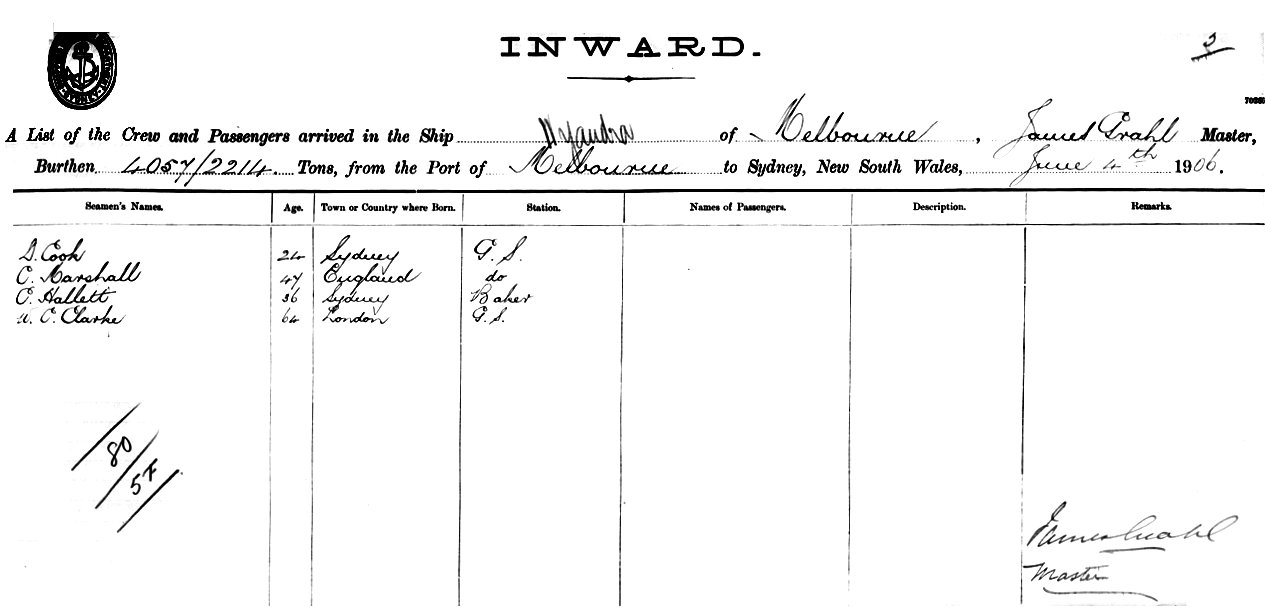 INWARD.
3
A List of the Crew and Passengers arrived in the Ship Wyandra of Melbourne, James Grahl Master,
Burthen 4057/2214 Tons, from the Port of Melbourne to Sydney, New South Wales, June 4th 1906.
Seamen's Names. Age. Town or Country where Born. Station. Names of Passengers. Description. Remarks.
D. Cook 24 Sydney G. S.
C. Marshall 47 England do
C. Hallett 36 Sydney Baker
W. C. Clarke 64 London G. S.
80
5 F
James Grahl
Master